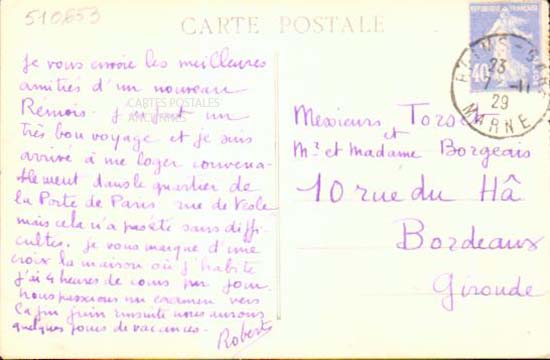 510653
CARTE POSTALE
Je vous envoie les meilleures
amitiés d'un nouveau
Rémois. J'ai fait un
très bon voyage et je suis
arrivé à me loger convena-
blement dans le quartier de
la Porte de Paris rue de Vesle
mais cela n'a pas été sans diffi-
cultés. Je vous marque d'une
croix la maison où j'habite
j'ai 4 heures de cours par jour.
Nous passons un examen vers
la fin juin ensuite nous aurons
quelques jours de vacances.
Robert
CARTES POSTALES
ANCIENNES
REPUBLIQUE FRANÇAISE
40
REIMS-GARE
23
7-11
29
MARNE
Messieurs
et
Mr et Madame Borgeais
10 rue du Hâ
Bordeaux
Gironde